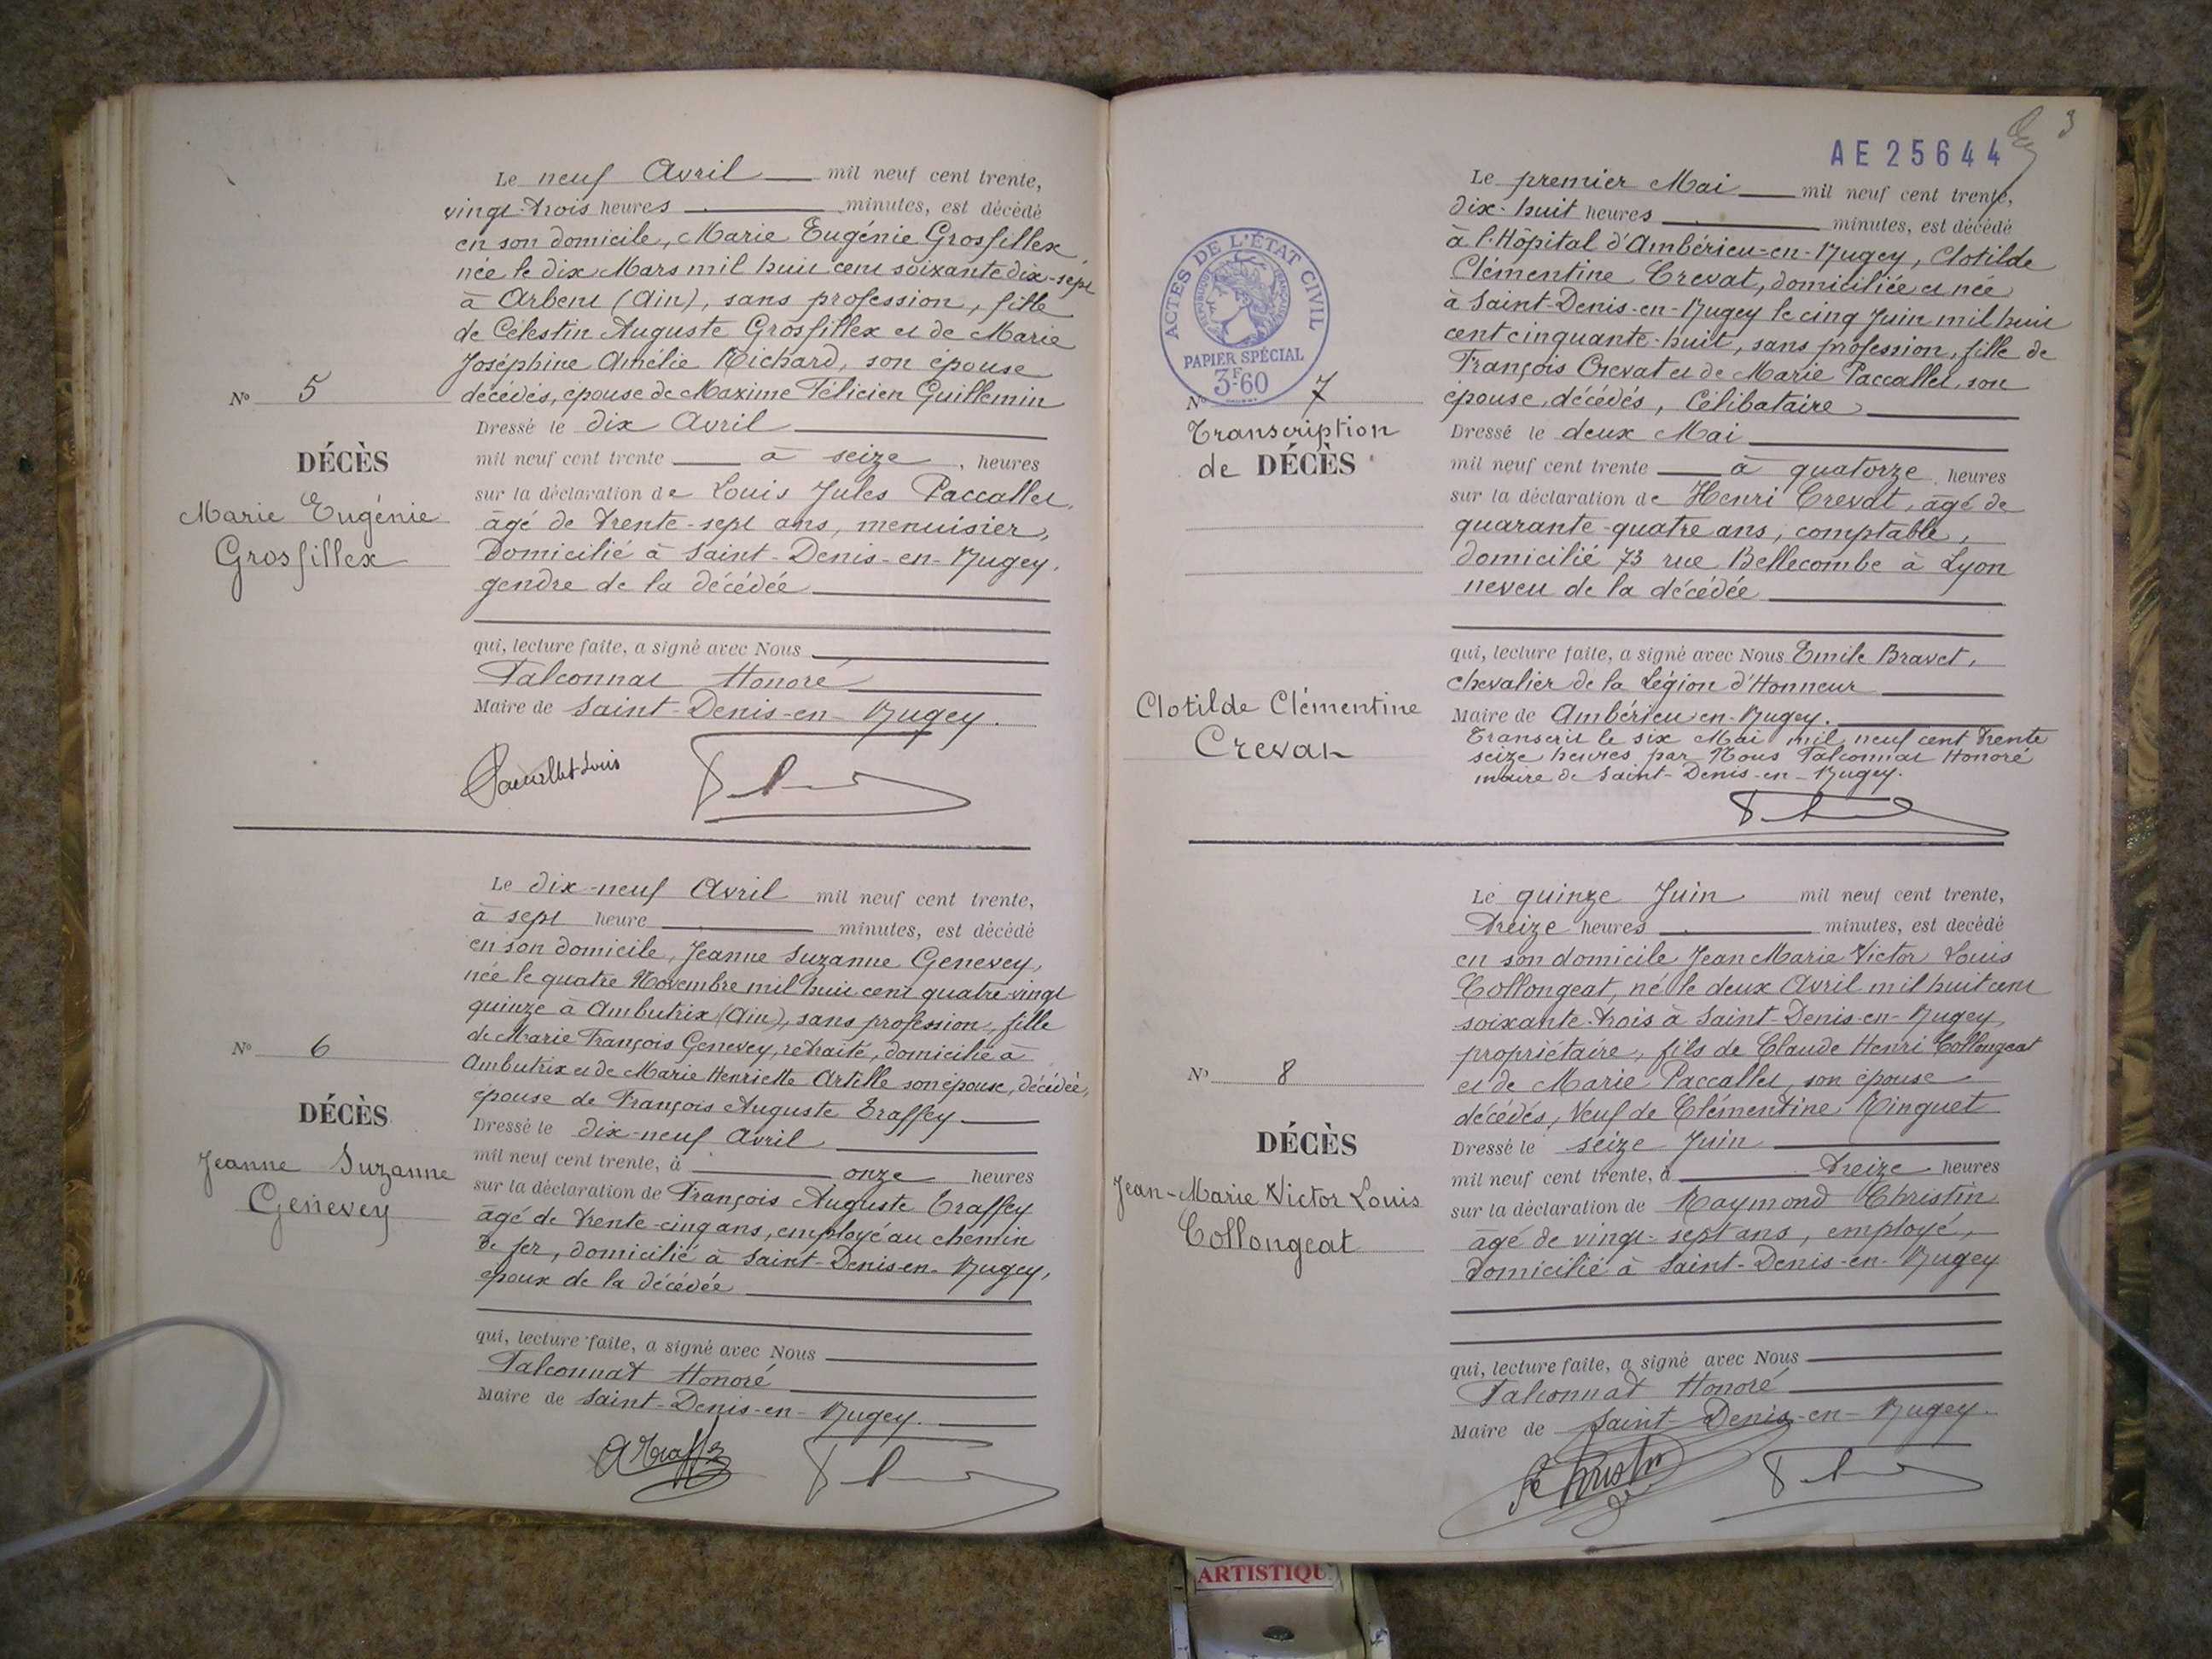 Le neuf Avril mil neuf cent trente,
vingt-trois heures minutes, est décédé
en son domicile, Marie Eugénie Grosfillex
née le dix Mars mil huit cent soixante dix-sept
à Arbent (Ain), sans profession, fille
de Célestin Auguste Grosfillex et de Marie
Joséphine Amélie Richard, son épouse
décédés, épouse de Maxime Félicien Guillemin
Nº 5
DÉCÈS
Marie Eugénie
Grosfillex
Dressé le dix Avril
mil neuf cent trente à seize, heures
sur la déclaration de Louis Jules Paccallet,
âgé de trente-sept ans, menuisier,
domicilié à Saint-Denis-en-Bugey,
gendre de la décédée
qui, lecture faite, a signé avec Nous
Falconnat Honoré
Maire de Saint-Denis-en-Bugey.
Paccallet Louis
Le dix-neuf Avril mil neuf cent trente,
à sept heure minutes, est décédé
en son domicile, Jeanne Suzanne Genevey,
née le quatre Novembre mil huit cent quatre-vingt
quinze à Ambutrix (Ain), sans profession, fille
de Marie François Genevey, retraité, domicilié à
Ambutrix et de Marie Henriette Artelle son épouse, décédée,
épouse de François Auguste Traffey
Nº 6
DÉCÈS
Jeanne Suzanne
Genevey
Dressé le dix-neuf Avril
mil neuf cent trente, à onze heures
sur la déclaration de François Auguste Traffey
âgé de trente-cinq ans, employé au chemin
de fer, domicilié à Saint-Denis-en-Bugey,
époux de la décédée
qui, lecture faite, a signé avec Nous
Falconnat Honoré
Maire de Saint-Denis-en-Bugey.
A Traffey
3
AE25644
Le premier Mai mil neuf cent trente,
dix-huit heures minutes, est décédé
à l'Hôpital d'Ambérieu-en-Bugey, Clotilde
Clémentine Crevat, domiciliée et née
à Saint-Denis-en-Bugey le cinq Juin mil huit
cent cinquante-huit, sans profession, fille de
François Crevat et de Marie Paccallet, son
épouse, décédés, Célibataire
ACTES DE L'ÉTAT CIVIL
PAPIER SPÉCIAL
3F60
Nº 7
Transcription
de DÉCÈS
Clotilde Clémentine
Crevat
Dressé le deux Mai
mil neuf cent trente à quatorze heures
sur la déclaration de Henri Crevat, âgé de
quarante-quatre ans, comptable,
domicilié 73 rue Bellecombe à Lyon
neveu de la décédée
qui, lecture faite, a signé avec Nous Emile Bravet,
chevalier de la Légion d'Honneur
Maire de Ambérieu-en-Bugey.
Transcrit le six Mai mil neuf cent trente
seize heures par Nous Falconnat Honoré
maire de Saint-Denis-en-Bugey.
Le quinze Juin mil neuf cent trente,
treize heures minutes, est décédé
en son domicile Jean Marie Victor Louis
Collongeat, né le deux Avril mil huit cent
soixante-trois à Saint-Denis-en-Bugey,
propriétaire, fils de Claude Henri Collongeat
et de Marie Paccallet, son épouse
décédés, Veuf de Clémentine Ringuet
Nº 8
DÉCÈS
Jean-Marie Victor Louis
Collongeat
Dressé le seize Juin
mil neuf cent trente, à treize heures
sur la déclaration de Raymond Christin
âgé de vingt-sept ans, employé,
domicilié à Saint-Denis-en-Bugey
qui, lecture faite, a signé avec Nous
Falconnat Honoré
Maire de Saint-Denis-en-Bugey.
Christin
ARTISTIQU